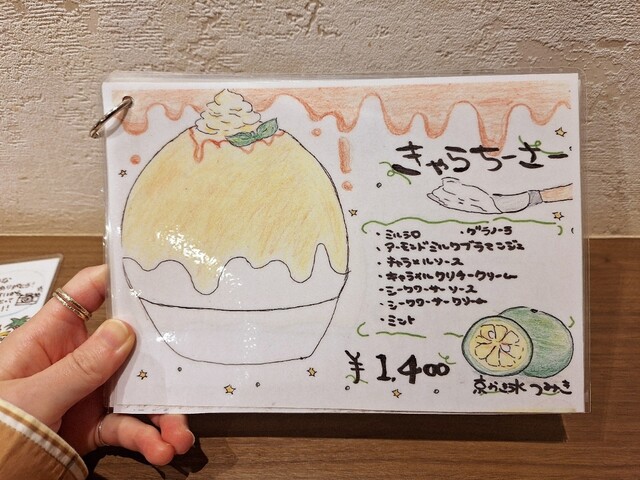 きゃらちーさー
・ミルシロ ・グラノーラ
・アーモンドミルクブラマンジェ
・キャラメルソース
・キャラメルクリチークリーム
・シークワーサーソース
・シークワーサークリーム
・ミント
¥1,400
つみき